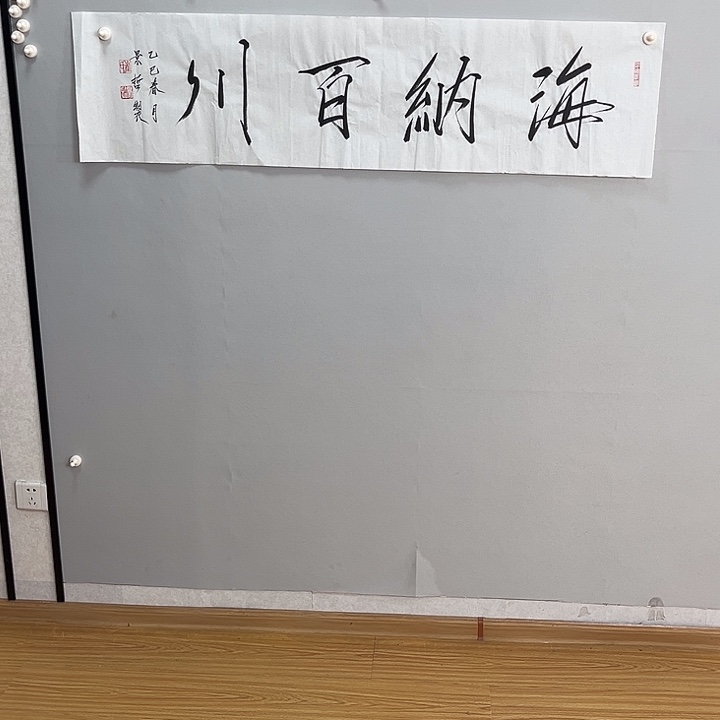 海納百川
乙巳春月